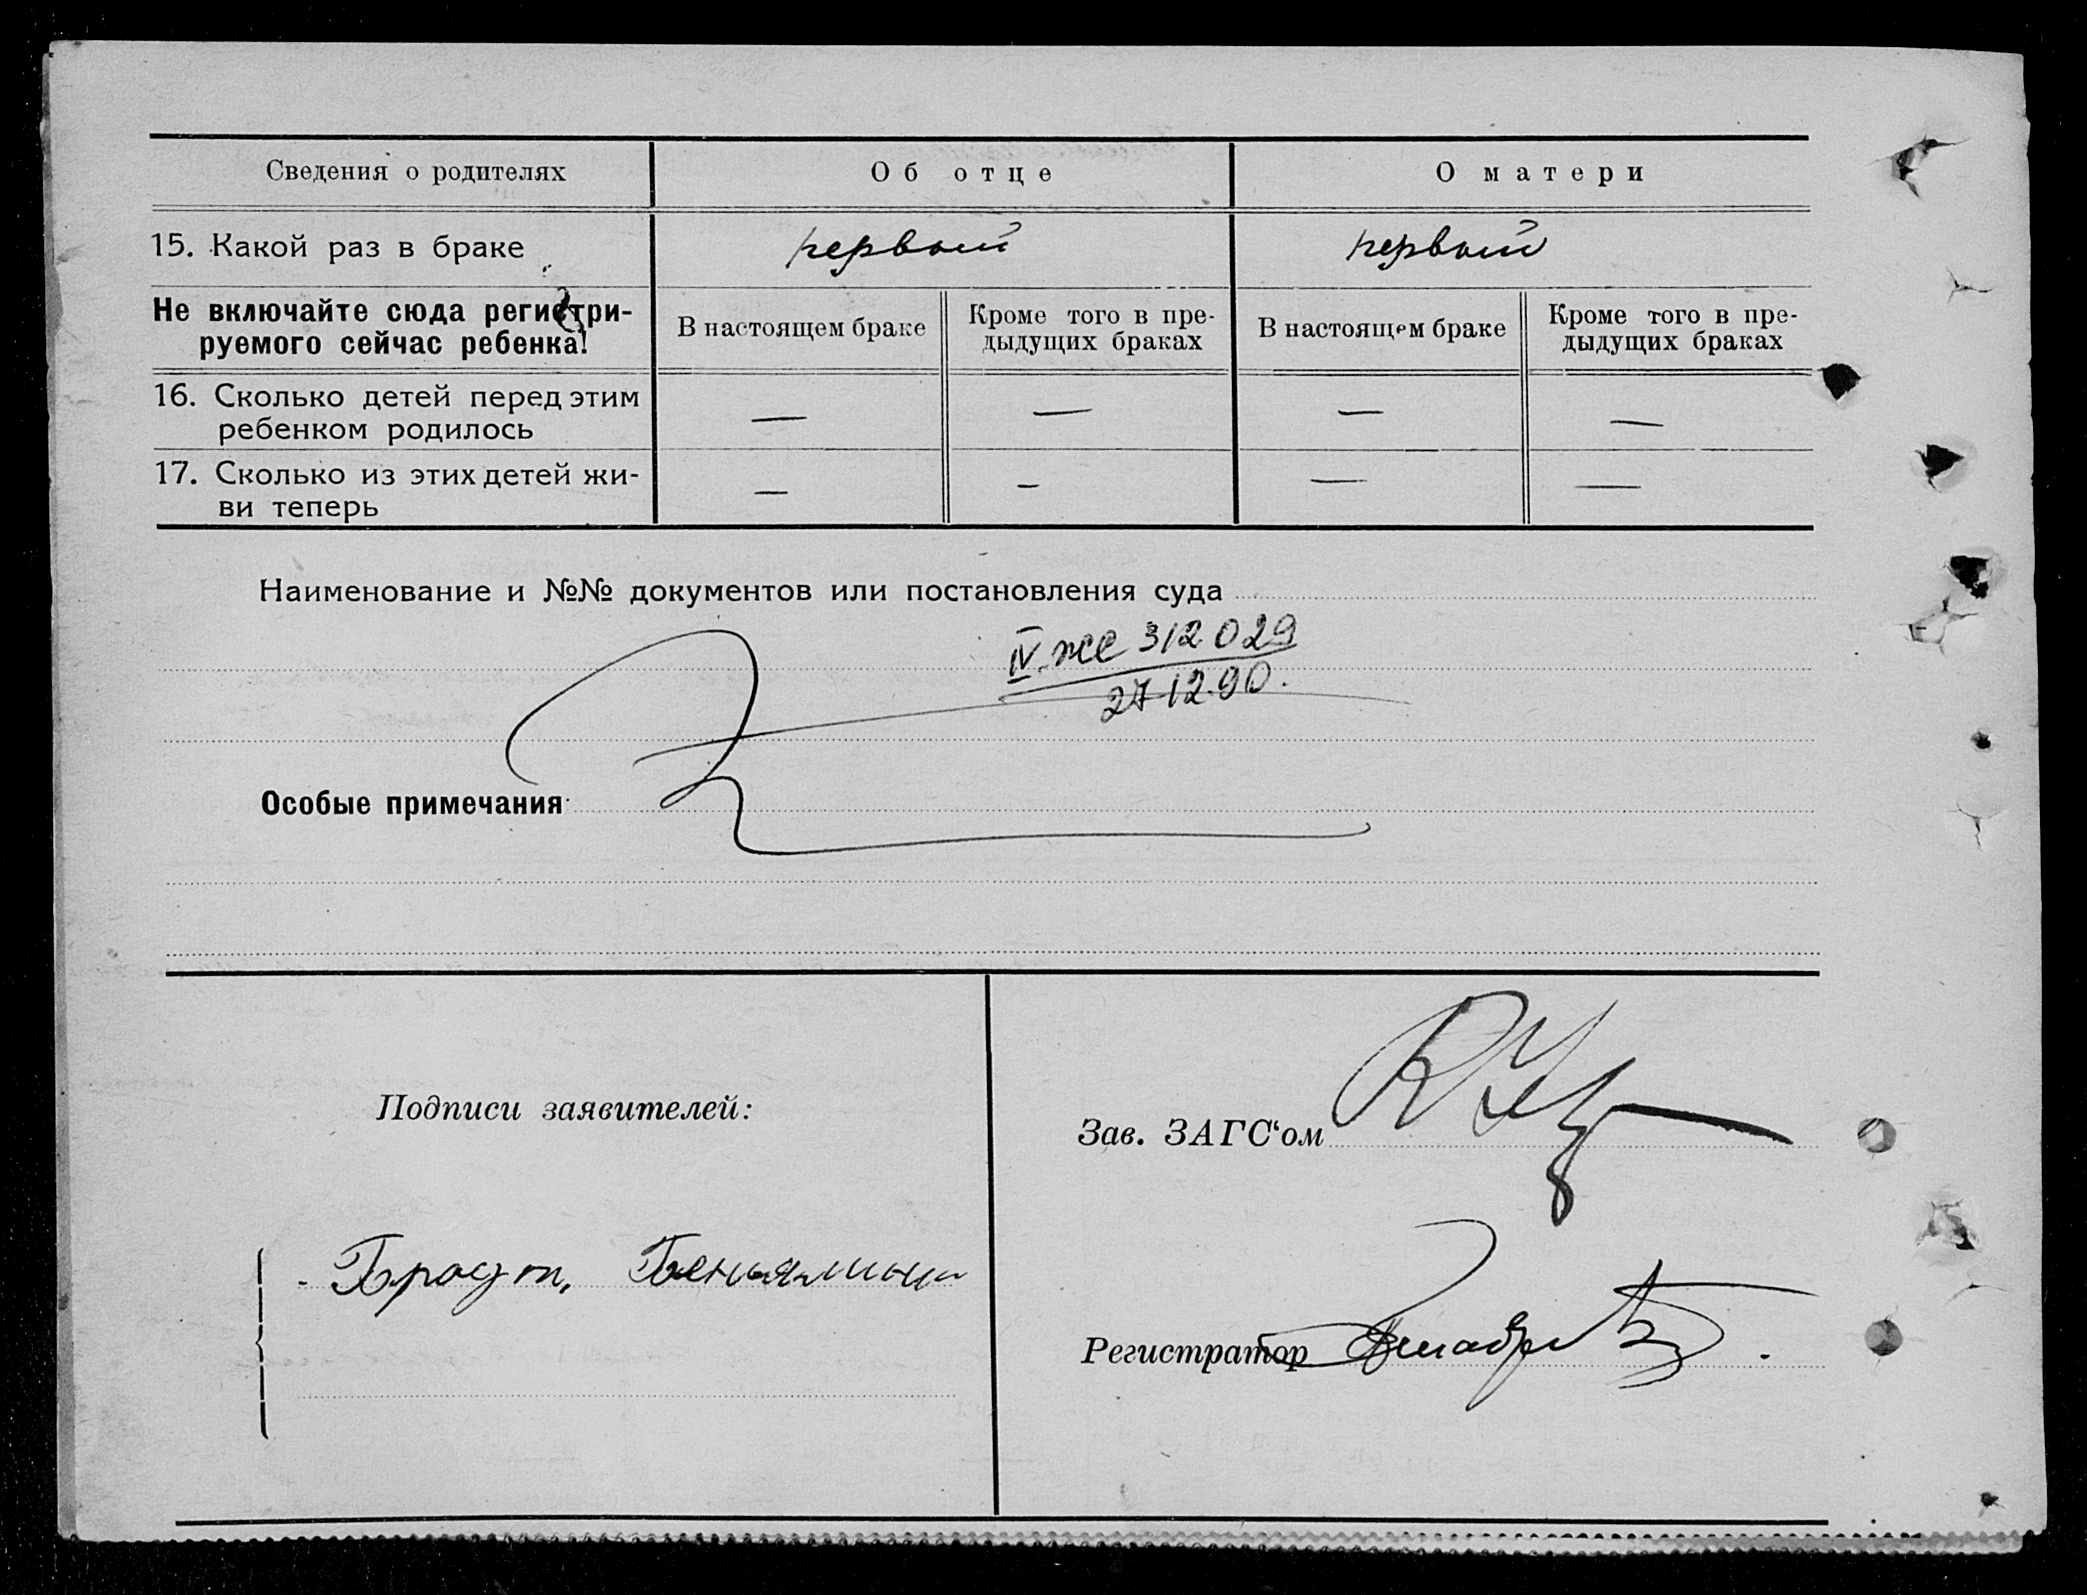 Сведения о родителях
Об отце
О матери
15. Какой раз в браке
первый
первый
Не включайте сюда регистри-
руемого сейчас ребенка!
В настоящем браке
Кроме того в пре-
дыдущих браках
В настоящем браке
Кроме того в пре-
дыдущих браках
16. Сколько детей перед этим
ребенком родилось
— — — —
17. Сколько из этих детей жи-
ви теперь
— — — —
Наименование и №№ документов или постановления суда
IV-ЖС 312029
27.12.90.
Особые примечания
Подписи заявителей:
Зав. ЗАГС‘ом
Браун, Беньямин
Регистратор